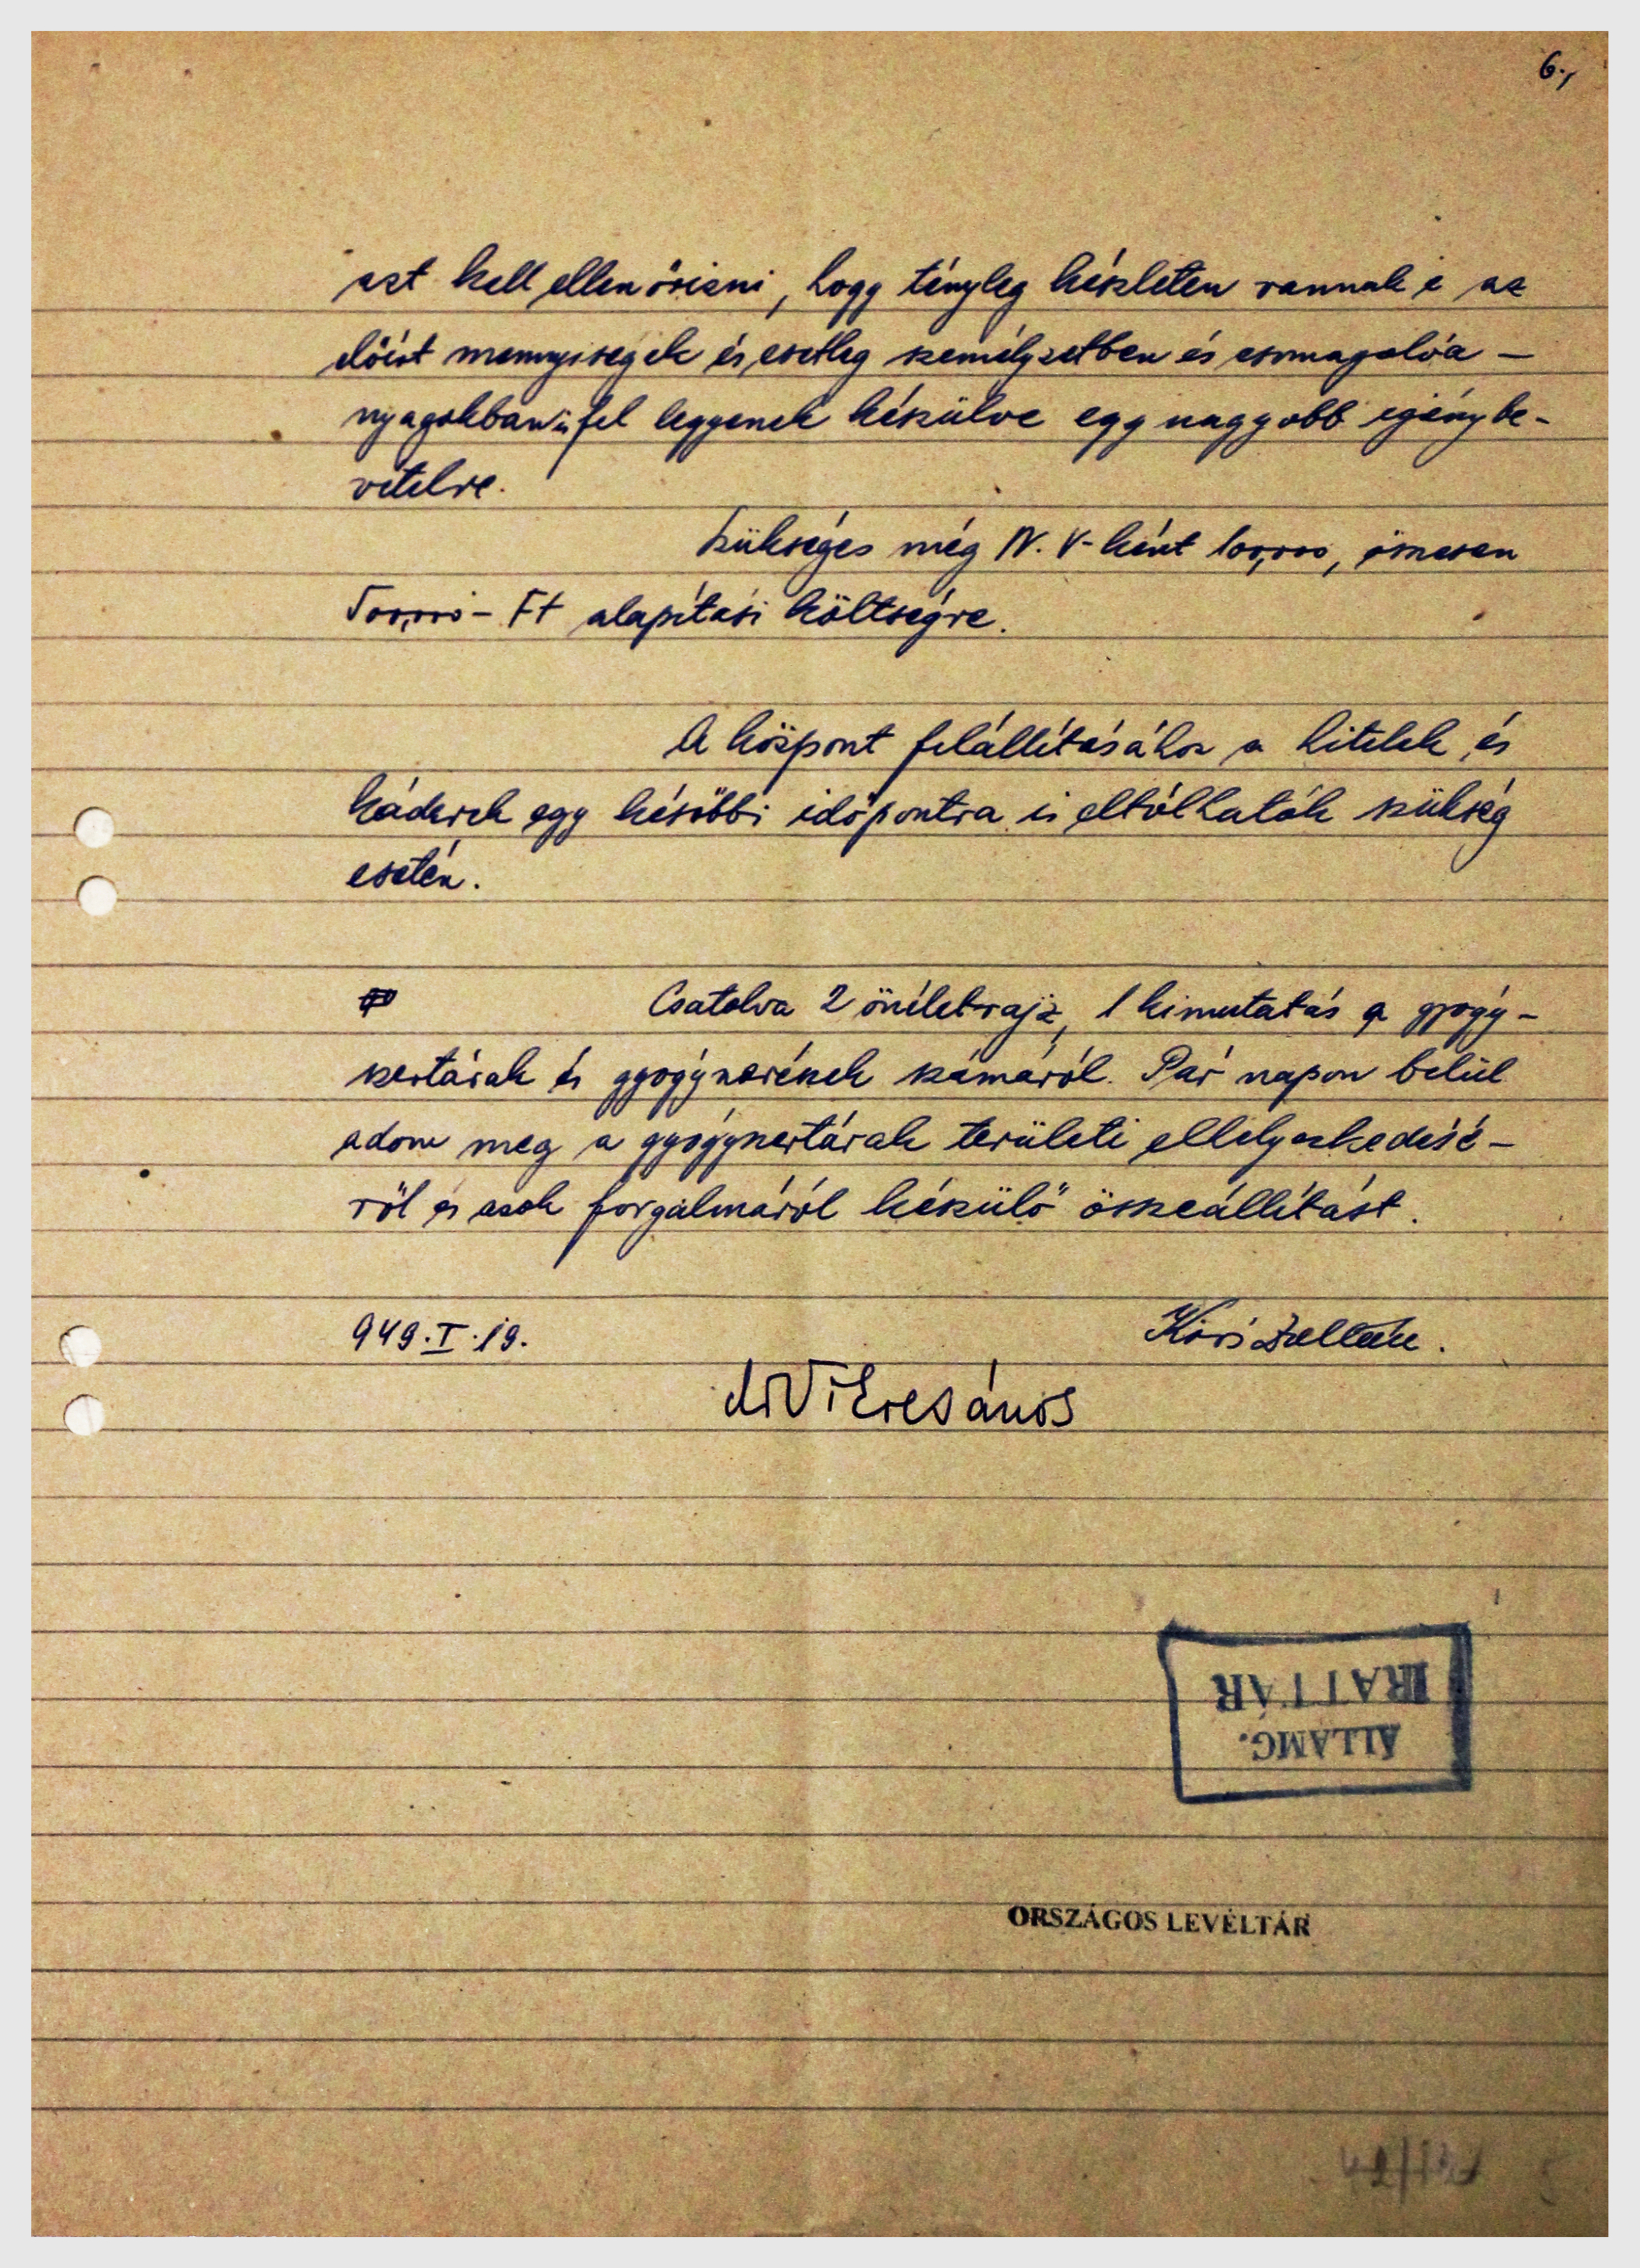 6.,
azt kell ellenőrizni, hogy tényleg készleten vannak e az
előírt mennyiségek és esetleg személyzetben és csomagolóa-
nyagokban is fel legyenek készülve egy nagyobb igénybe-
vételre.
Szükséges még N. V-ként 100,000, összesen
500,000- Ft alapítási költségre.
A központ felállításához a hitelek és
káderek egy későbbi időpontra is eltólhatók szükség
esetén.
Csatolva 2 önéletrajz, 1 kimutatás a gyógy-
szertárak és gyógyszerészek számáról. Pár napon belül
adom meg a gyógyszertárak területi elhelyezkedésé-
ről és azok forgalmáról készülő összeállítást.
949.I.19.
Zoltán.
dr
János
IRATTÁR
ÁLLAMG.
ORSZÁGOS LEVÉLTÁR